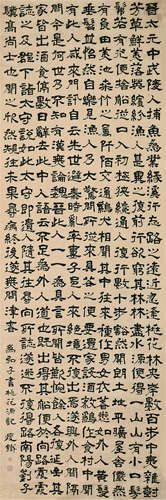 晉太元中武陵人捕魚為業緣溪行忘路之遠近忽逢桃花林夾岸數百步中無雜樹
芳草鮮美落英繽紛漁人甚異之復前行欲窮其林林盡水源便得一山山有小口髣
髴若有光便捨船從口入初極狹纔通人復行數十步豁然開朗土地平曠屋舍儼然
有良田美池桑竹之屬阡陌交通雞犬相聞其中往來種作男女衣著悉如外人黃髮
垂髫並怡然自樂見漁人乃大驚問所從來具答之便要還家設酒殺雞作食村中聞
有此人咸來問訊自云先世避秦時亂率妻子邑人來此絕境不復出焉遂與外人間隔
問今是何世乃不知有漢無論魏晉此人一一為具言所聞皆歎惋餘人各復延至其
家皆出酒食停數日辭去此中人語云不足為外人道也既出得其船便扶向路處處
誌之及郡下詣太守說如此太守即遣人隨其往尋向所誌遂迷不復得路南陽劉子
驥高尚士也聞之欣然規往未果尋病終後遂無問津者 子書桃花源記